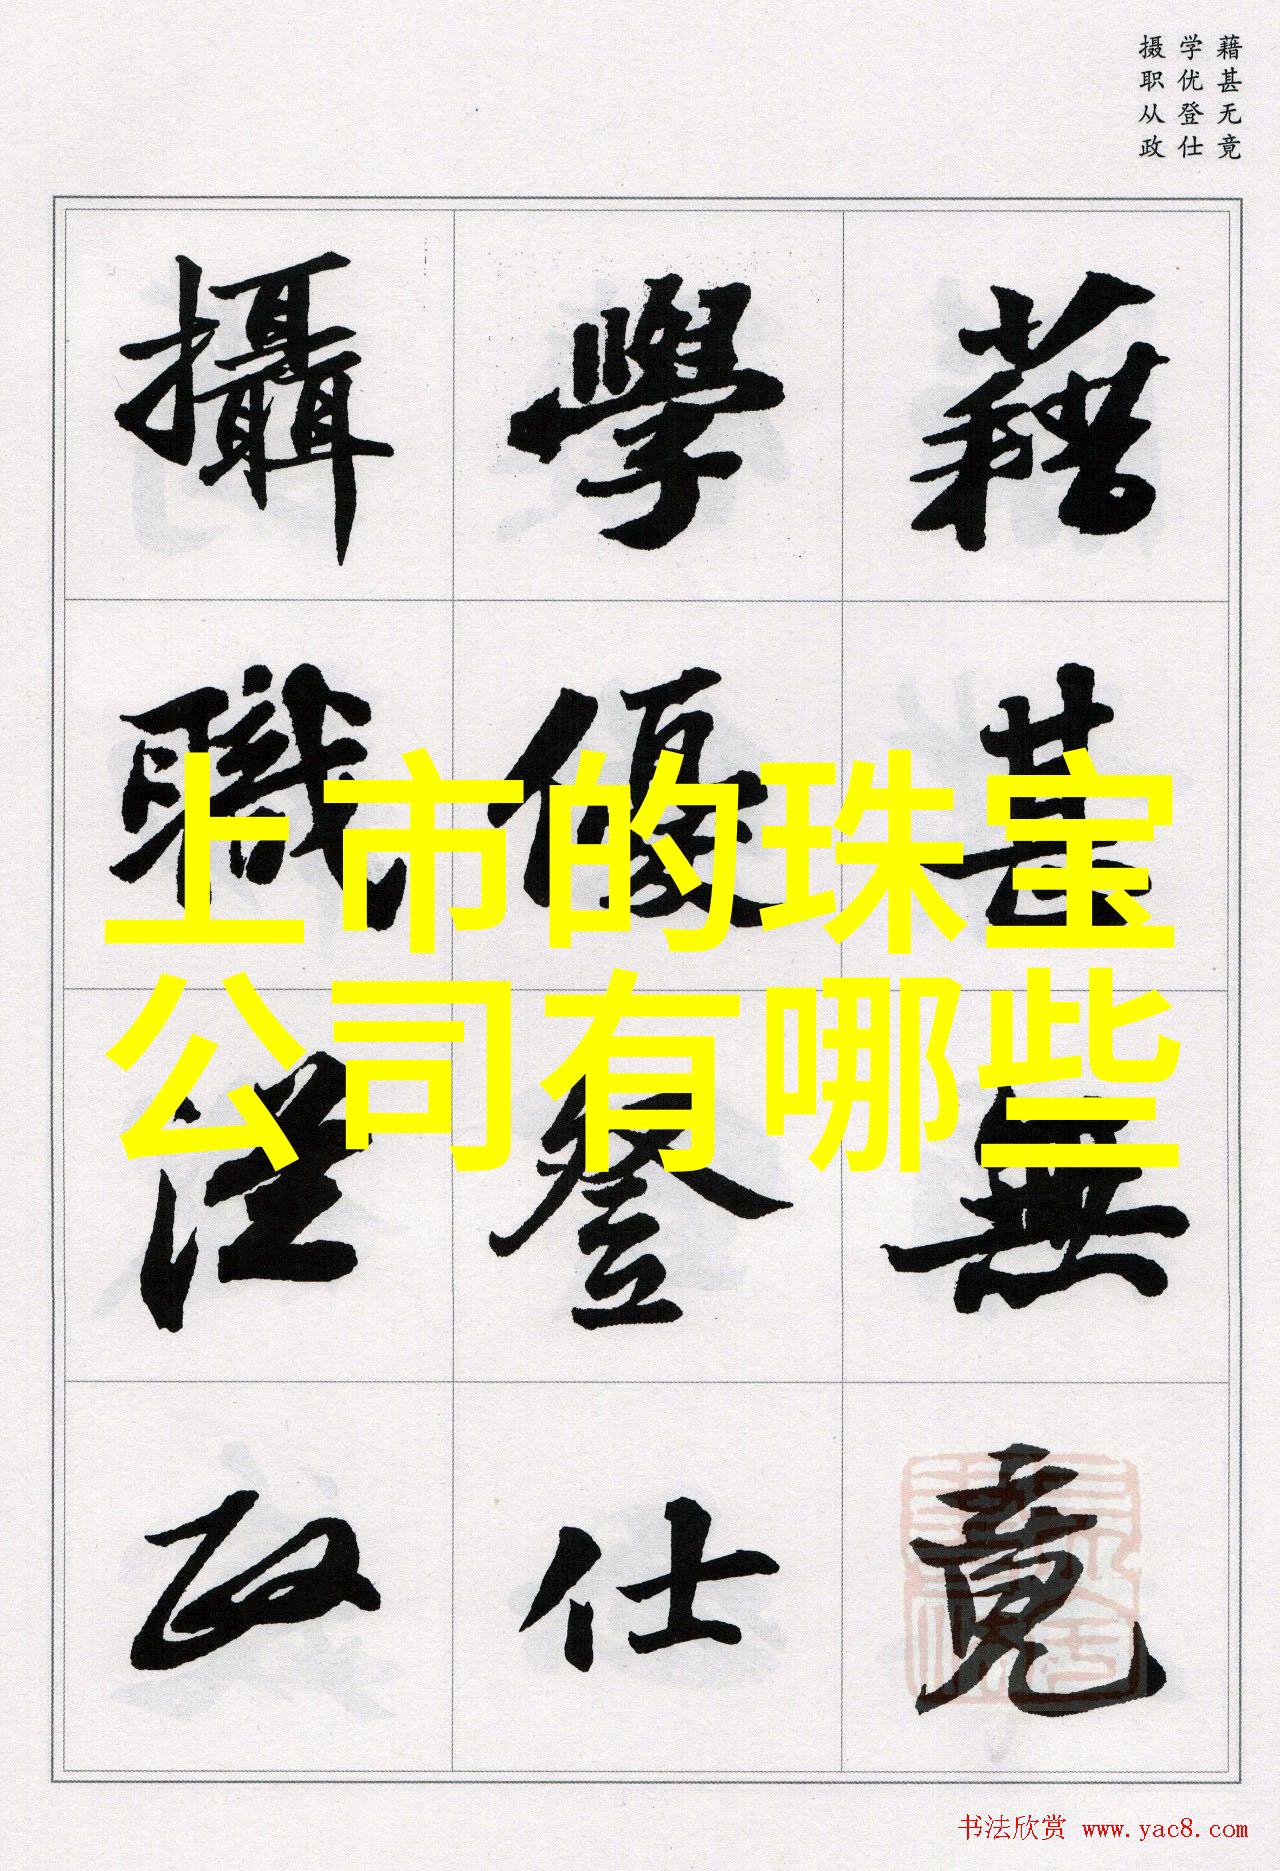 藉甚无竟
学优登仕
摄职从政
藉甚無竟
學優登仕
攝職從政
上市的珠宝
公司有哪些
书法欣赏 www.yac8.com